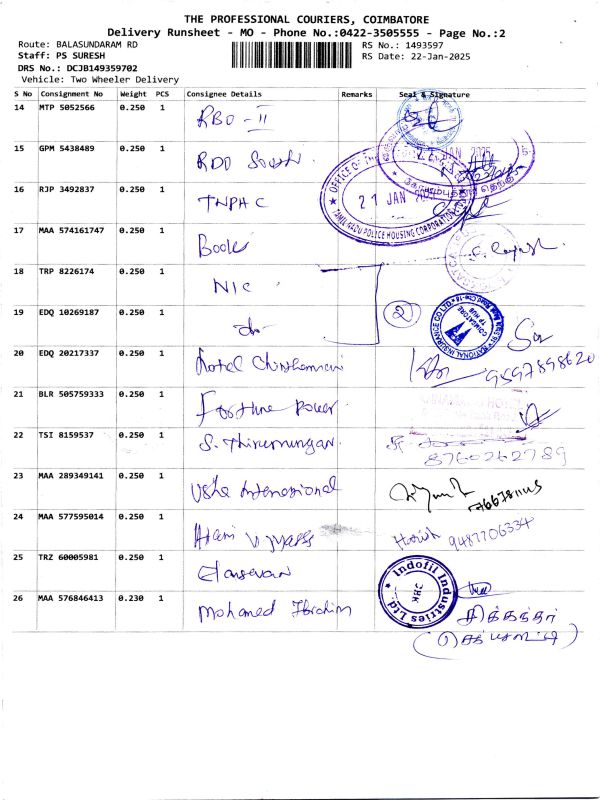 THE PROFESSIONAL COURIERS, COIMBATORE
Delivery Runsheet - MO - Phone No.:0422-3505555 - Page No.:2
Route: BALASUNDARAM RD RS No.: 1493597
Staff: PS SURESH RS Date: 22-Jan-2025
DRS No.: DCJB149359702
Vehicle: Two Wheeler Delivery
S No Consignment No Weight PCS Consignee Details Remarks Seal & Signature
14 MTP 5052566 0.250 1 RBO - II
15 GPM 5438489 0.250 1 RDO
16 RJP 3492837 0.250 1 TNPHC
OFFICE OF THE
21 JAN 2025
TAMIL NADU POLICE HOUSING CORPORATION
17 MAA 574161747 0.250 1
18 TRP 8226174 0.250 1 NIC
19 EDQ 10269187 0.250 1 do 2
NATIONAL INSURANCE CO LTD
COIMBATORE
20 EDQ 20217337 0.250 1 Hotel Chinthamani 9597898620
21 BLR 505759333 0.250 1 Fortune Power
22 TSI 8159537 0.250 1 S. Thirumurugan 8760262789
23 MAA 289349141 0.250 1 Usha International
24 MAA 577595014 0.250 1 9487706334
25 TRZ 60005981 0.250 1 Elansevan
Indofil Industries Ltd
26 MAA 576846413 0.230 1 Mohamed Ibrahim சிக்கந்தர்